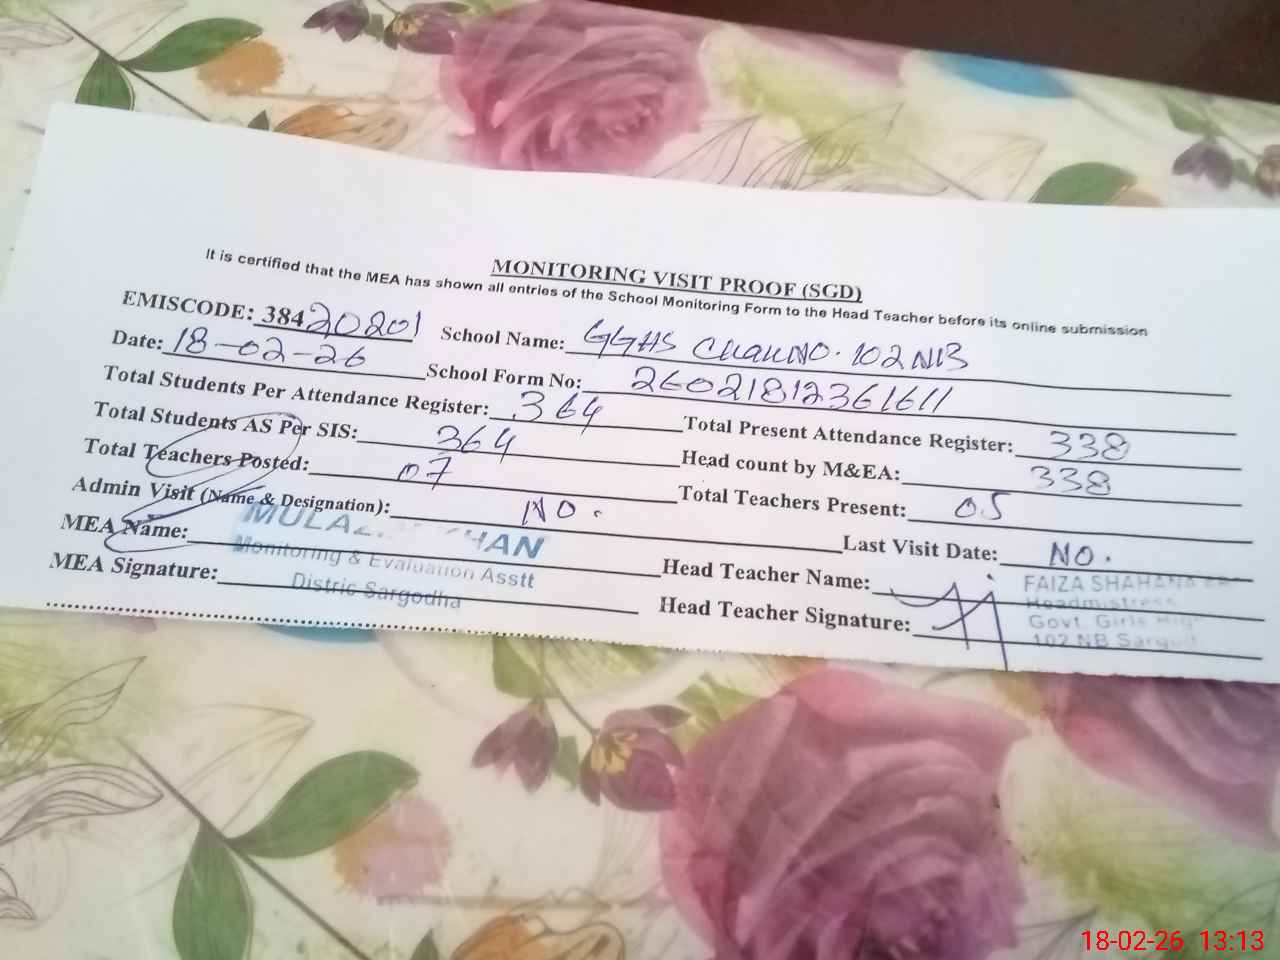 MONITORING VISIT PROOF (SGD)
It is certified that the MEA has shown all entries of the School Monitoring Form to the Head Teacher before its online submission
EMISCODE: 38420201 School Name: GGHS Chak NO. 102 NB
Date: 18-02-26 School Form No: 26021812361611
Total Students Per Attendance Register: 364 Total Present Attendance Register: 338
Total Students AS Per SIS: 364 Head count by M&EA: 338
Total Teachers Posted: 07 Total Teachers Present: 05
Admin Visit (Name & Designation): NO. Last Visit Date: NO.
MEA Name: KHAN Head Teacher Name: FAIZA SHAHANA
Monitoring & Evaluation Asstt
Headmistress
MEA Signature: Distric Sargodha Head Teacher Signature: Govt. Girls High
102 NB
18-02-26 13:13